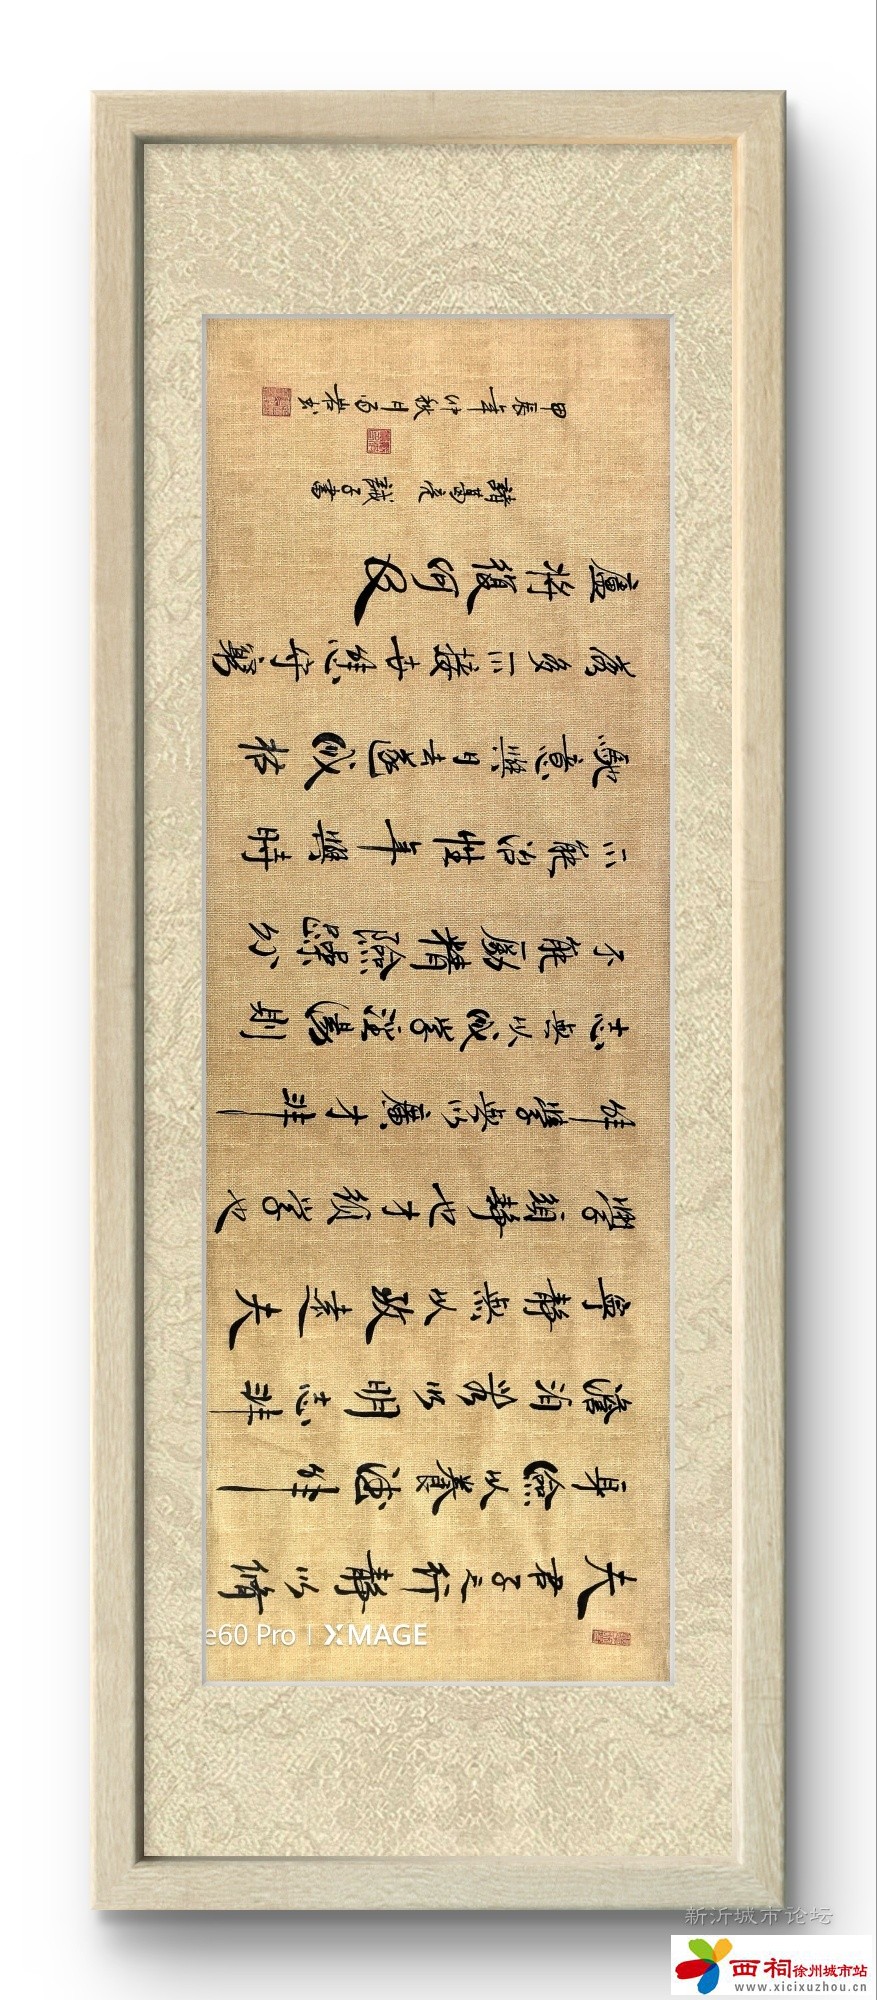 夫君子之行靜以脩
身儉以養德非
澹泊無以明志非
寧靜無以致遠夫
學須靜也才須學也
非學無以廣才非
志無以成學淫慢則
不能勵精險躁則
不能治性年與時
馳意與日去遂成枯
落多不接世悲守窮
廬將復何及
諸葛亮誡子書
甲辰年仲秋月
e60 Pro | XMAGE
新沂城市论坛
西祠徐州城市站
www.xicixuzhou.cn